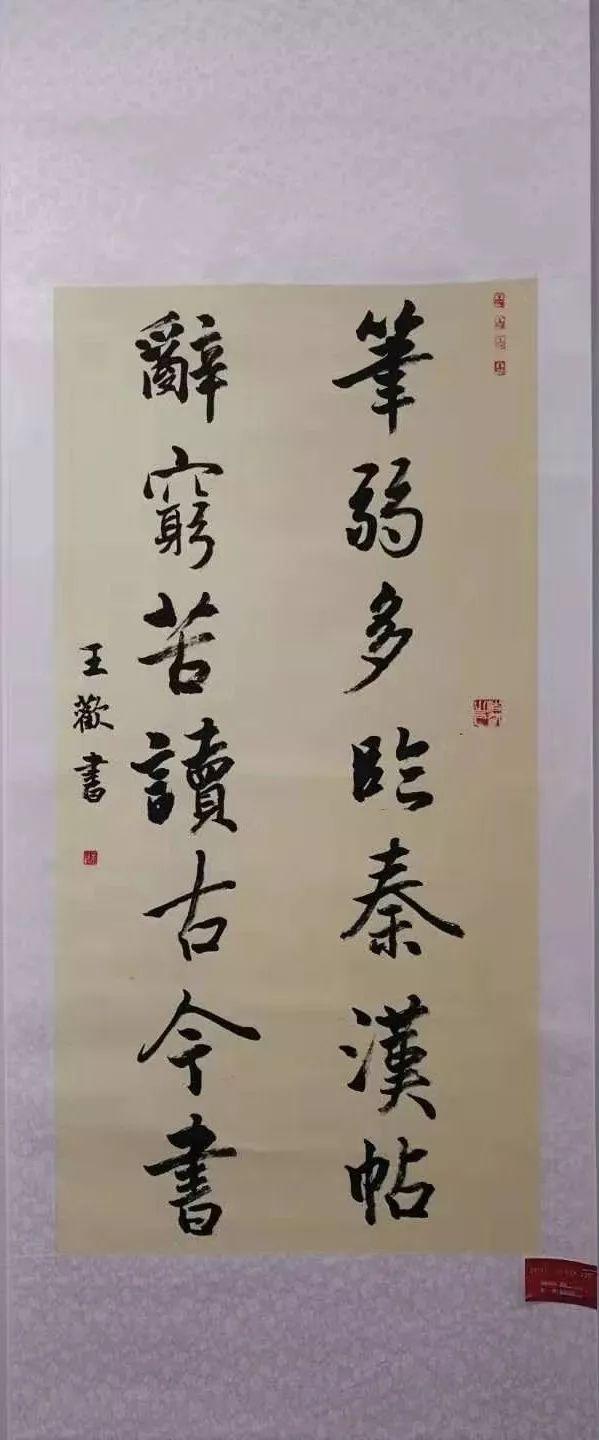 筆弱多臨秦漢帖
辭窮苦讀古今書
王歡書